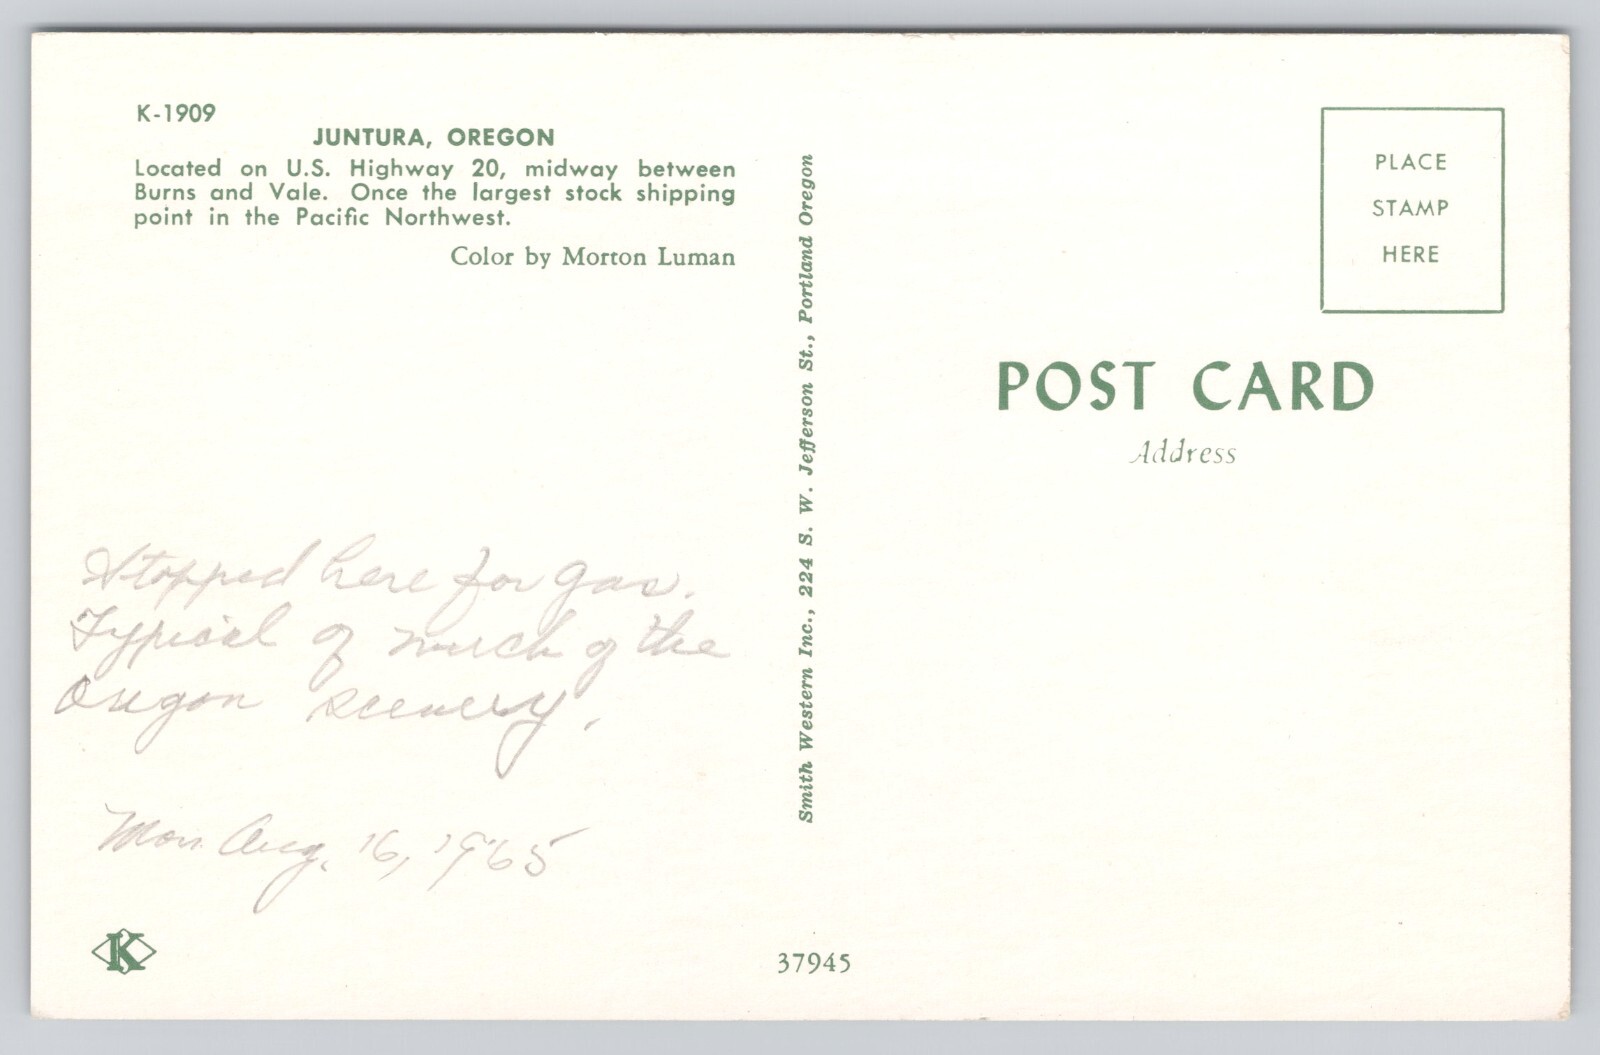 K-1909
JUNTURA, OREGON
Located on U.S. Highway 20, midway between
Burns and Vale. Once the largest stock shipping
point in the Pacific Northwest.
Color by Morton Luman
Stopped here for gas.
Typical of much of the
Oregon scenery.
Mon. Aug. 16, 1965
K
Smith Western Inc., 224 S. W. Jefferson St., Portland Oregon
37945
PLACE
STAMP
HERE
POST CARD
Address